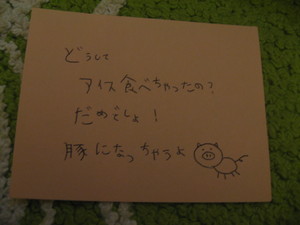 どうして
アイス食べちゃったの?
だめでしょ!
豚になっちゃうよ